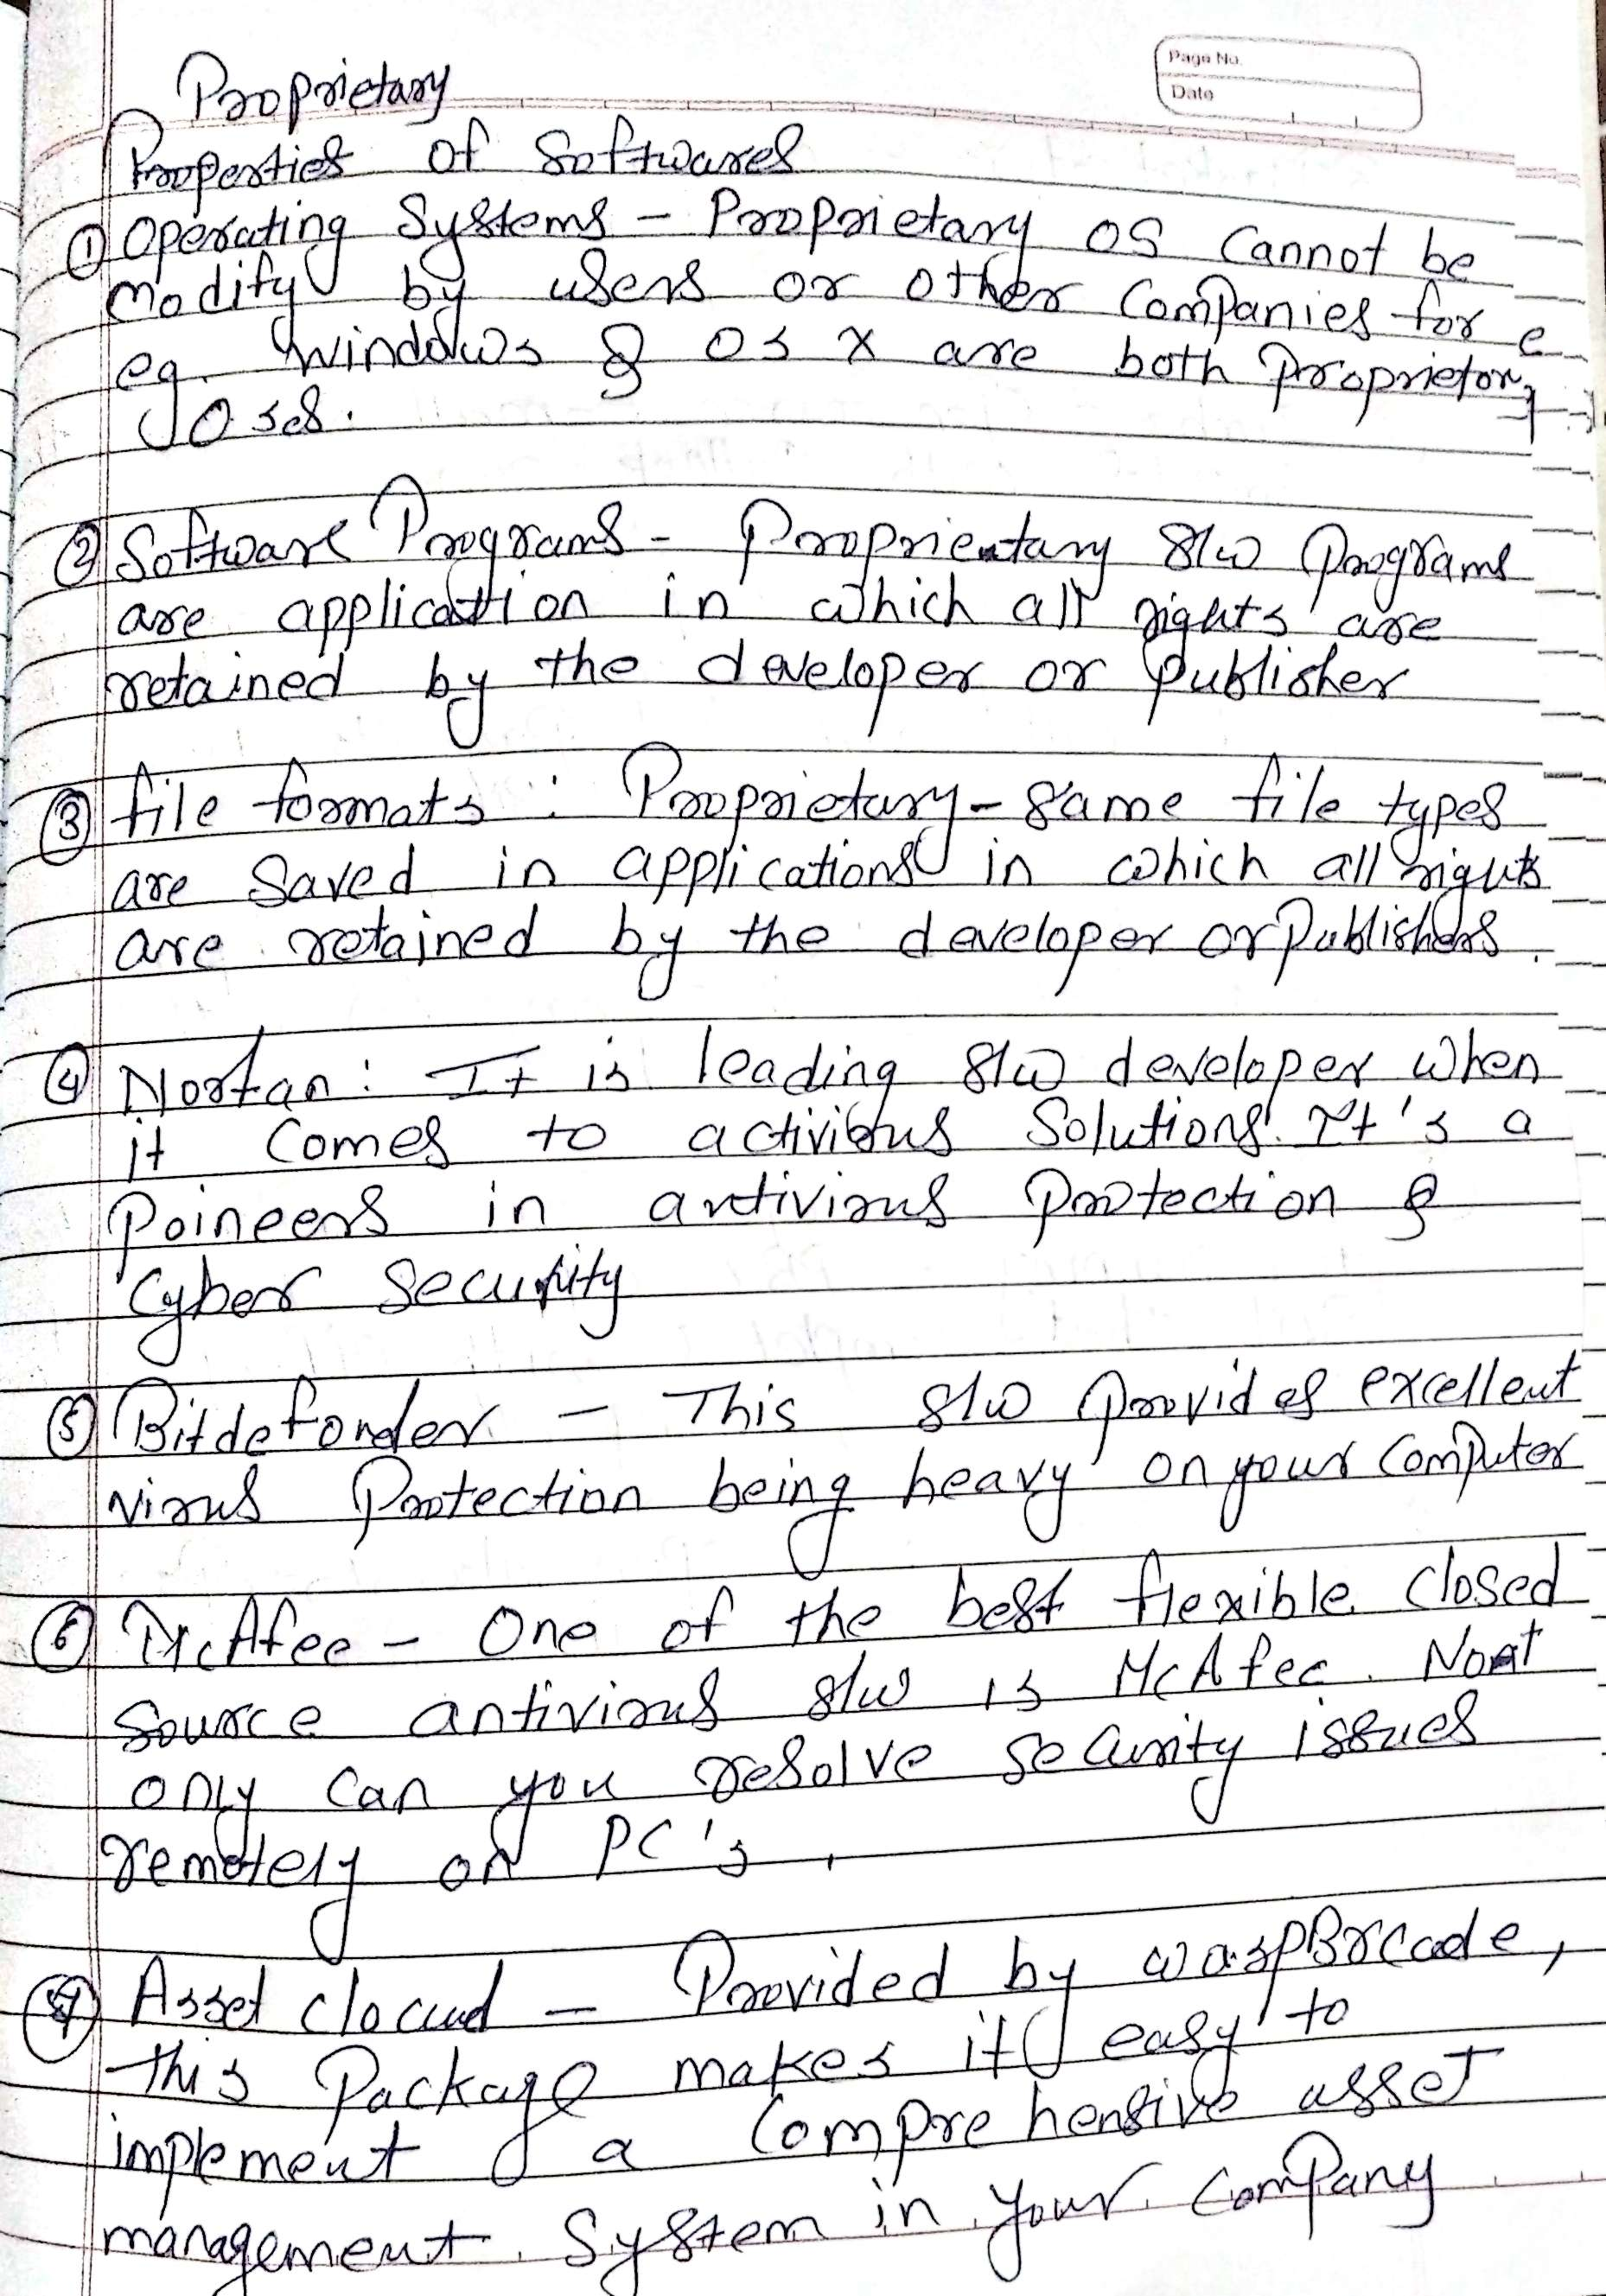 Page No.
Date
Proprietary
Properties of Softwares
① Operating Systems - Proprietary OS Cannot be
modify by users or other Companies for e
eg. windows & OS X are both Proprietory
OSes.
② Software Programs - Proprieatary S/w Programs
are application in which all rights are
retained by the developer or Publisher
③ file formats : Proprietary - Same file types
are Saved in applications in which all rights
are retained by the developer or Publishers.
④ Nortan : It is leading S/w developer when
it Comes to activirus Solutions. It's a
Poineers in antivirus Protection &
Cyber Security
⑤ Bitdefonder - This S/w Provides excellent
virus Protection being heavy on your Computer
⑥ McAfee - One of the best flexible Closed
Source antivirus S/w is McAfee. Not
only Can you resolve Security issues
remotely on PC's.
⑦ Asset cloud - Provided by waspBrcode,
this Package makes it easy to
implement a Comprehensive asset
management System in your Company